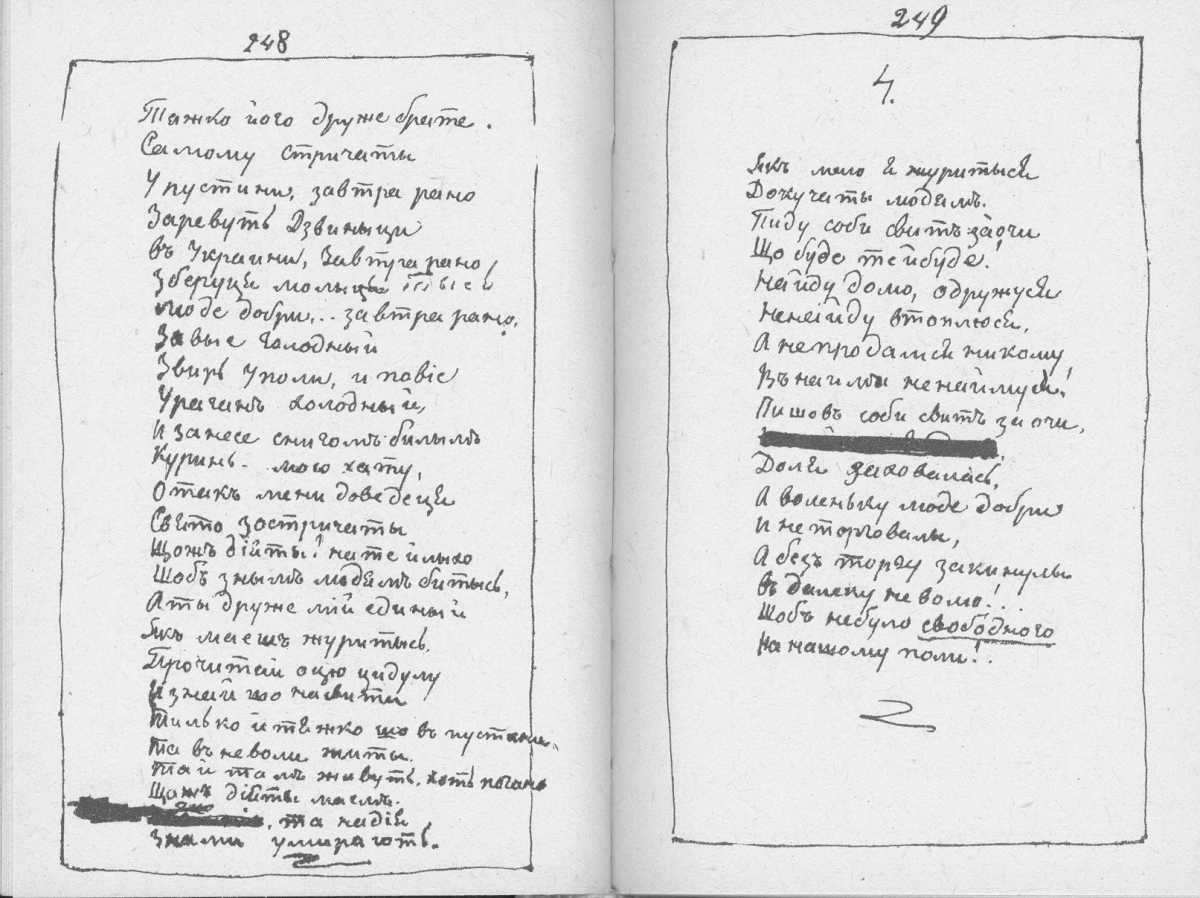 248
Тяжко його друже брате.
Самому стричаты
У пустыни, завтра рано
Заревуть Дзвиныци
въ Украини, Завтра рано
Зберуця молыця
люде добри,.. завтра рано,
Завые голодный
Звирь у поли, и повіе
Ураганъ холодный,
И занесе снигомъ билымъ
Куринь- мою хату,
Отакъ мени доведеця
Свято зостричаты
Щожъ дійты! на те й лыхо
Щобъ зъ нымъ людямъ битысь,
А ты друже мій единый
Якъ маешъ журитысь,
Прочитай оцю цидулу
И знай що на свити
Тилько й тяжко що въ пустыни,
Та въ неволи жыты.
Та й тамъ живуть, хоть погано
Щожъ дійты маемъ.
, та надія
Зъ намы умирають.
249
4.
Якъ маю я журитыся
Докучаты людямъ.
Пиду соби свитъ за очи
Що буде те й буде!
Найду долю, одружуся
Не найду втоплюся,
А не продамся никому,
Въ наймы не наймуся!
Пишовъ соби свитъ за очи,
Доля заховалась,
А воленьку люде добри
И не торговалы,
А безъ торгу закинулы
Въ далеку неволю!..
Щобъ не було свободного
На нашому поли!..